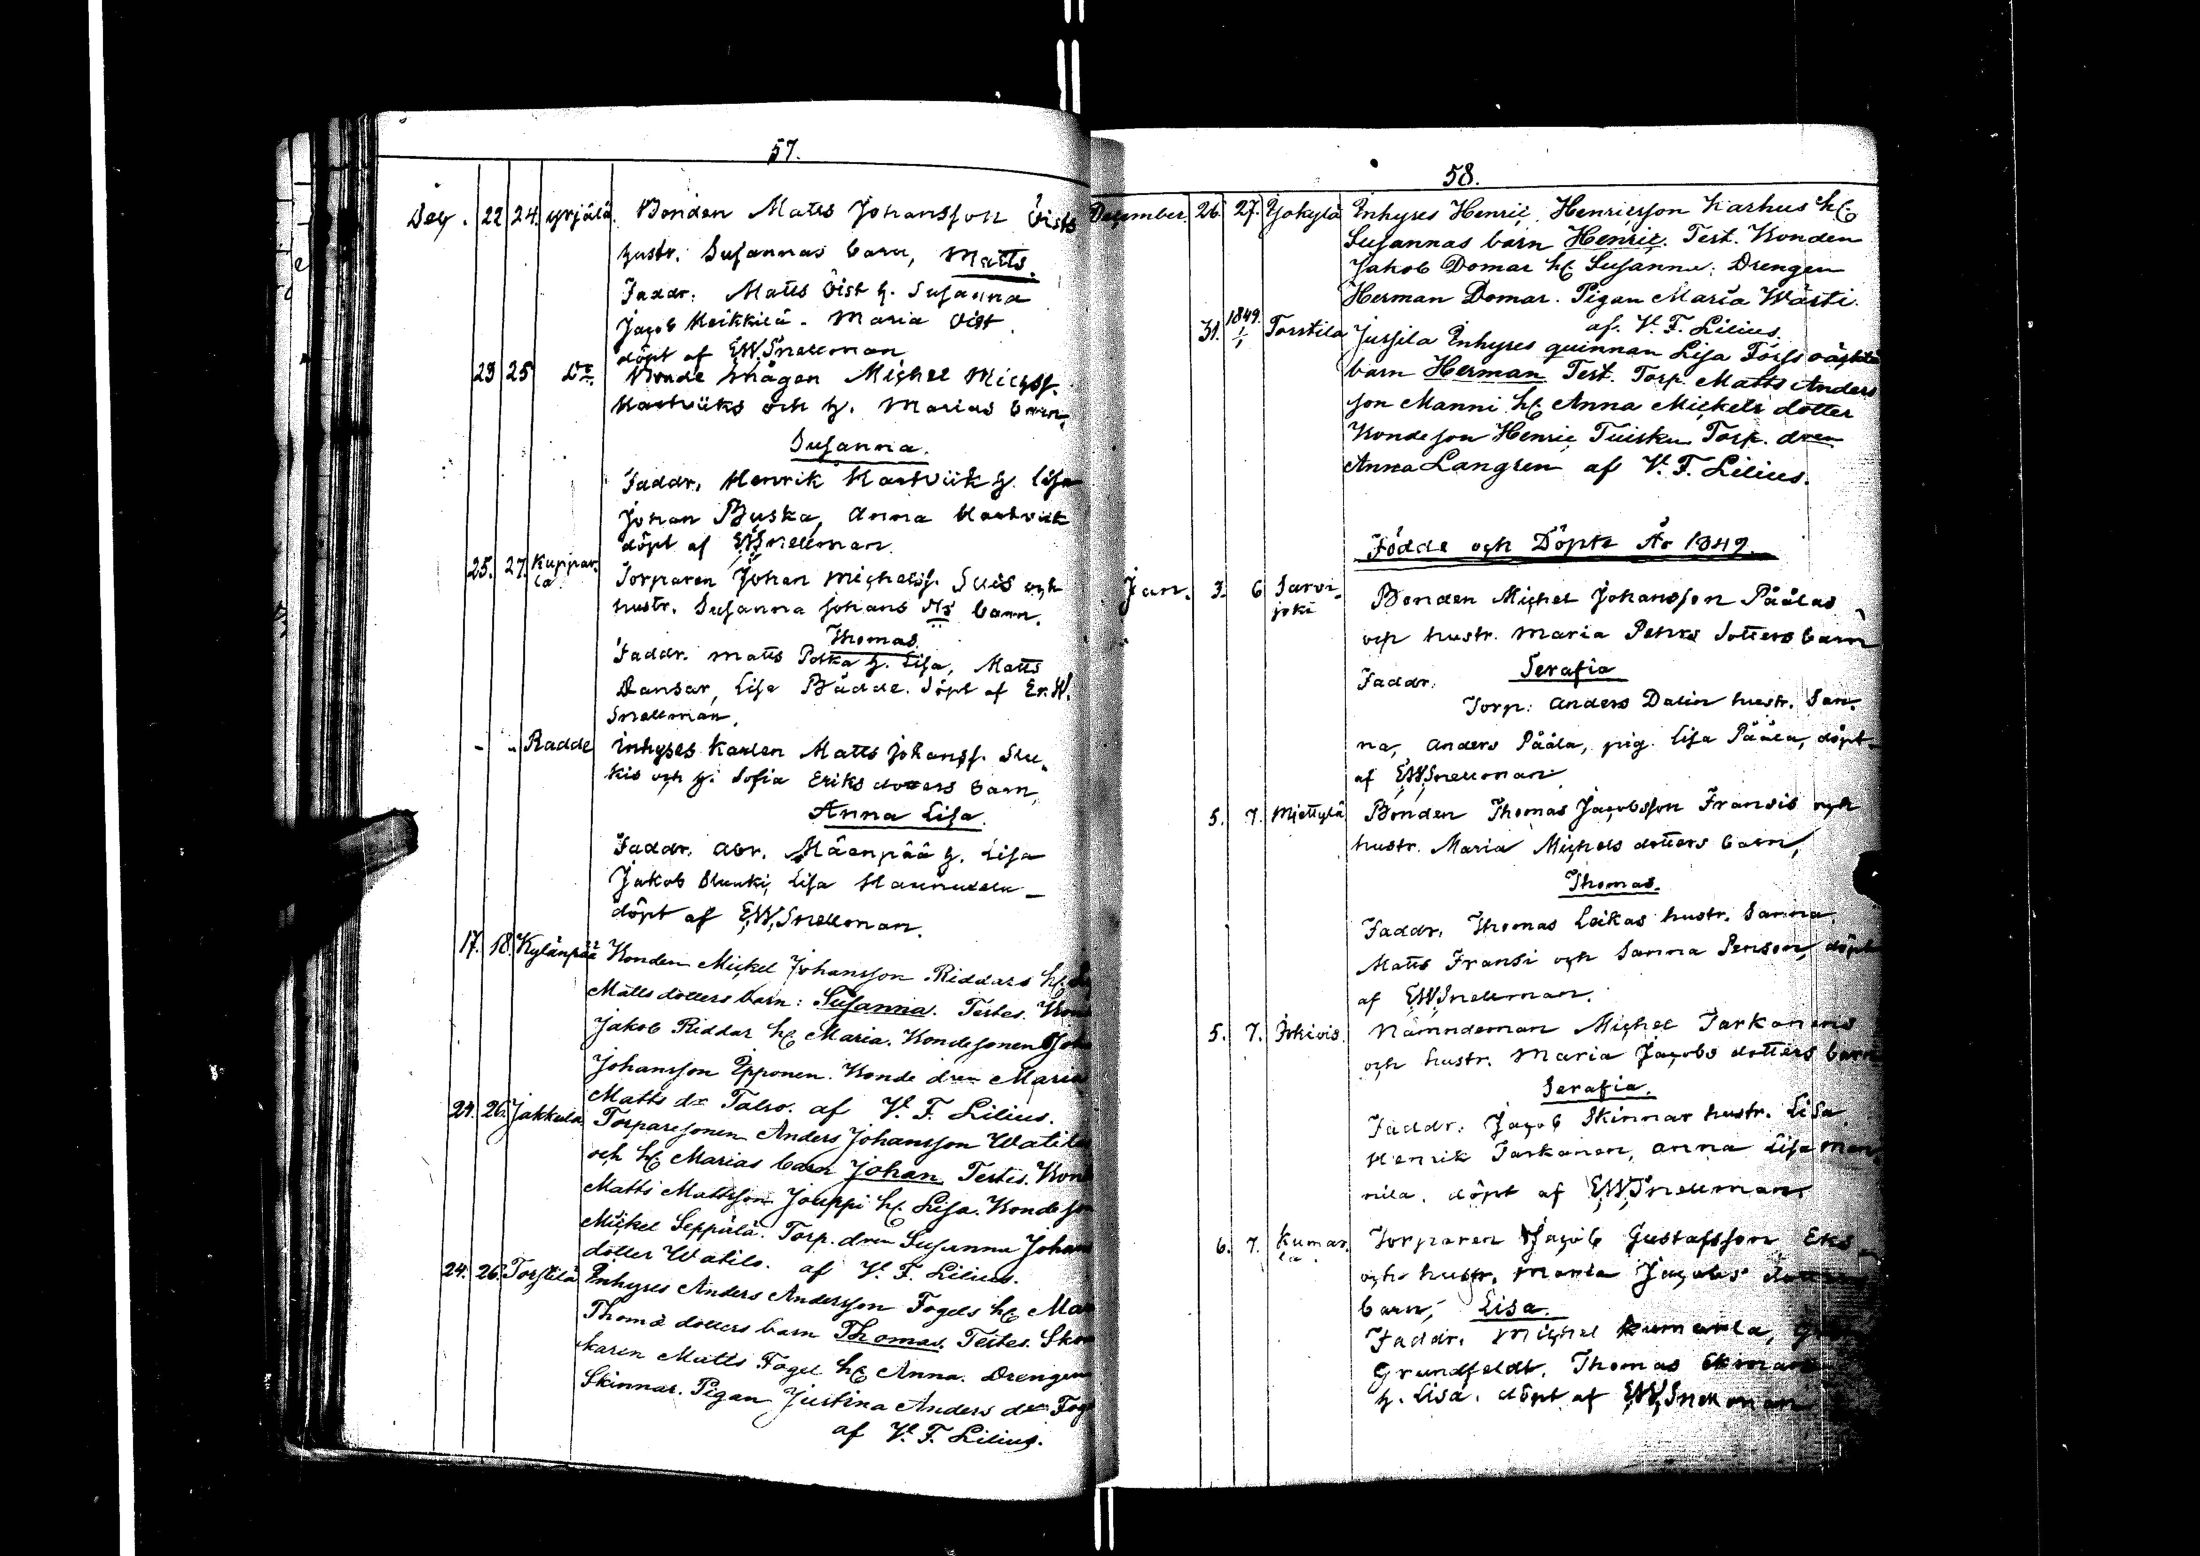 57.
Dec. 22 24. Yrjälä. Bonden Matts Johansson Öists
hustr. Susannas barn, Matts.
Faddr. Matts Öist h. Susanna
Jacob Heikkilä. Maria Öist.
döpt af EWSnellman
23 25 Do Bonde mågen Michel Michss.
Hartviiks och h. Marias barn,
Susanna.
Faddr. Henrik Hartviik h. Lisa
Johan Buska, Anna Hartviik
döpt af EWSnellman.
25. 27. Kuppar-
la. Torparen Johan Michelss. Suis och
hustr. Susanna Johans drs barn.
Thomas.
Faddr. Matts Polka h. Lisa, Matts
Dansar, Lisa Bådde. döpt af Er. W.
Snellman.
- - Radde Inhyses karlen Matts Johanss. Slu-
kis och h. Sofia Eriks dotters barn,
Anna Lisa.
Faddr. Abr. Mäenpää h. Lisa
Jakob Sluuki, Lisa
döpt af EWSnellman.
17. 18. Kylänpää Bonden Mickel Johansson Riddars h.
Matts dotters barn: Susanna. Testes. Bond
Jakob Riddar h. Maria. Bondesonen Joh
Johansson Epponen. Bonde dren Maria
Matts dr Talso. af V. F. Lilius.
24. 26. Jakkula Torparesonen Anders Johansson Watila
och h. Marias barn Johan. Testes. Bond
Matts Mattsson Jouppi h. Lisa. Bondeson
Mickel Seppälä. Torp. dren Susanna Johans
dotter Watila. af V. F. Lilius.
24. 26. Torstila Inhyses Anders Andersson Fogels h. Mar
Thomæ dotters barn Thomas. Testes. Sko
karen Matts Fogel h. Anna. Drengen
Skinnar. Pigan Justina Anders dr Foge
af V. F. Lilius.
58.
December. 26. 27. Yokylä Inhyses Henric Henricsson Karhus h.
Susannas barn Henric. Test. Bonden
Jakob Domar h. Susanna. Drengen
Herman Domar. Pigan Maria Wästi.
af. V. F. Lilius.
31. 1849. 1/1 Torstila Jussila Inhyses quinnan Lisa Forss oäckta
barn Herman Test. Torp. Matts Anders
son Manni h. Anna Mickels dotter
Bondeson Henric Tuisku Torp. dren
Anna Langren af V. F. Lilius.
Födde och Döpte År 1849
Jan. 3. 6 Sarvi-
joki Bonden Michel Johansson Päälas
och hustr. Maria Pehrs dotters barn
Serafia
Faddr.
Torp: Anders Dalin hustr. San-
na, Anders Pääla, pig. Lisa Pääla, döpt
af EWSnellman
5. 7. Miettylä Bonden Thomas Jacobsson Fransis och
hustr. Maria Michels dotters barn,
Thomas.
Faddr. Thomas Laikas hustr. Sanna
Matts Fransi och Sanna Penson, döpt
af EWSnellman.
5. 7. Jokivis. Nämndeman Michel Tarkanens
och hustr. Maria Jacobs dotters barn
Serafia.
Faddr. Jacob Skinnar hustr. Lisa
Henrik Tarkanen, Anna Lisa Man-
nila. döpt af EWSnellman
6. 7. Kumar-
la. Torparen Jacob Gustafsson Eks
och hustr. Maria Jacobs dotters
barn, Lisa.
Faddr. Michel Kumarla,
Grundfeldt. Thomas Ekman
h. Lisa. döpt af EWSnellman